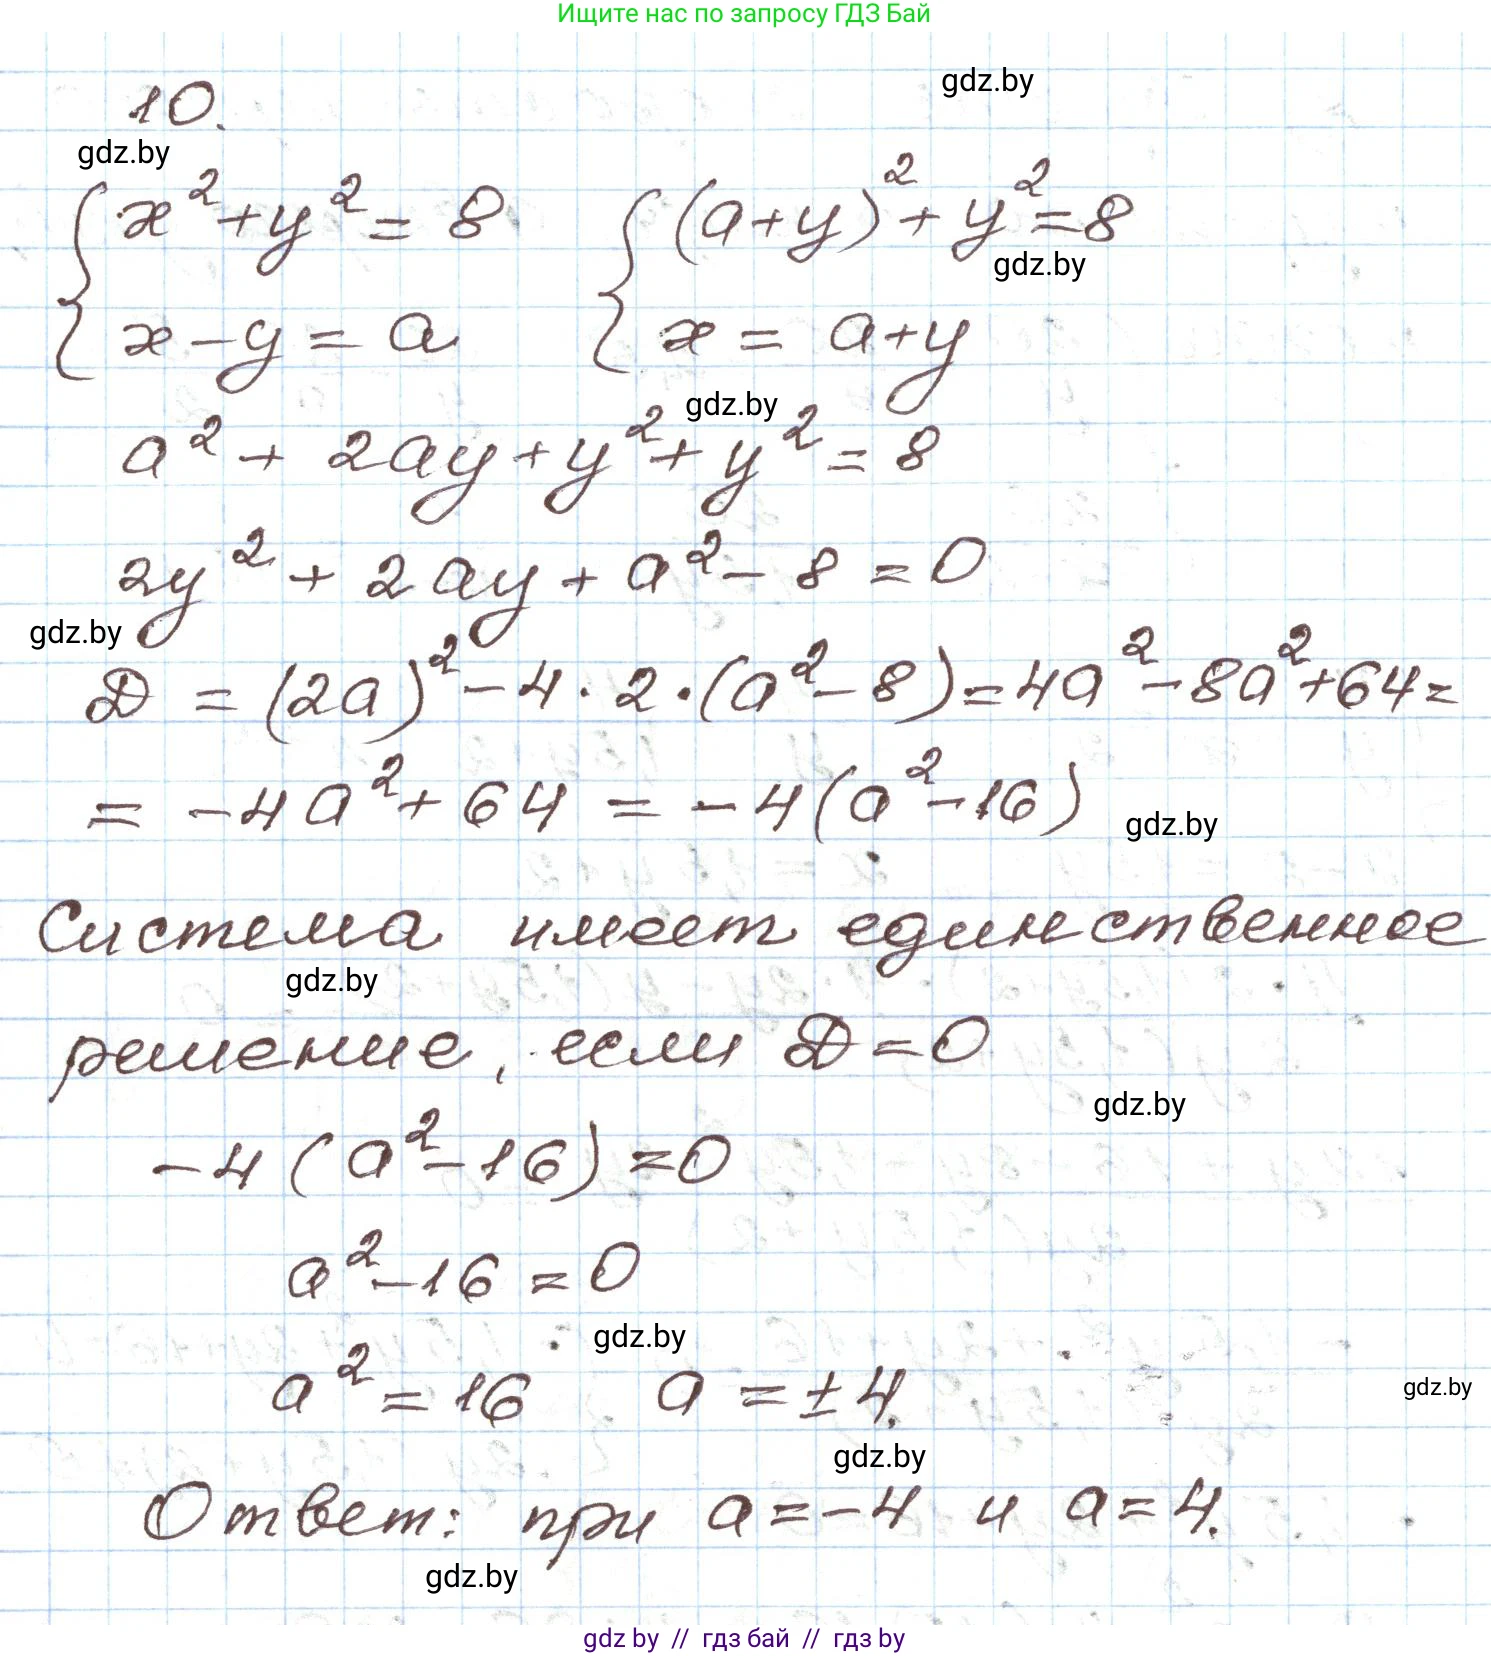 Ищите нас по запросу ГДЗ Бай
10.
gdz.by
gdz.by
x² + y² = 8
(a+y)² + y² = 8
gdz.by
x - y = a
x = a+y
gdz.by
a² + 2ay + y² + y² = 8
2y² + 2ay + a² - 8 = 0
gdz.by
D = (2a)² - 4 · 2 · (a² - 8) = 4a² - 8a² + 64 =
= -4a² + 64 = -4(a² - 16)
gdz.by
Система имеет единственное
gdz.by
решение, если D = 0
gdz.by
-4(a² - 16) = 0
a² - 16 = 0
gdz.by
a² = 16 a = ±4.
gdz.by
gdz.by
Ответ: при a = -4 и a = 4.
gdz.by
gdz by // гдз бай // гдз by